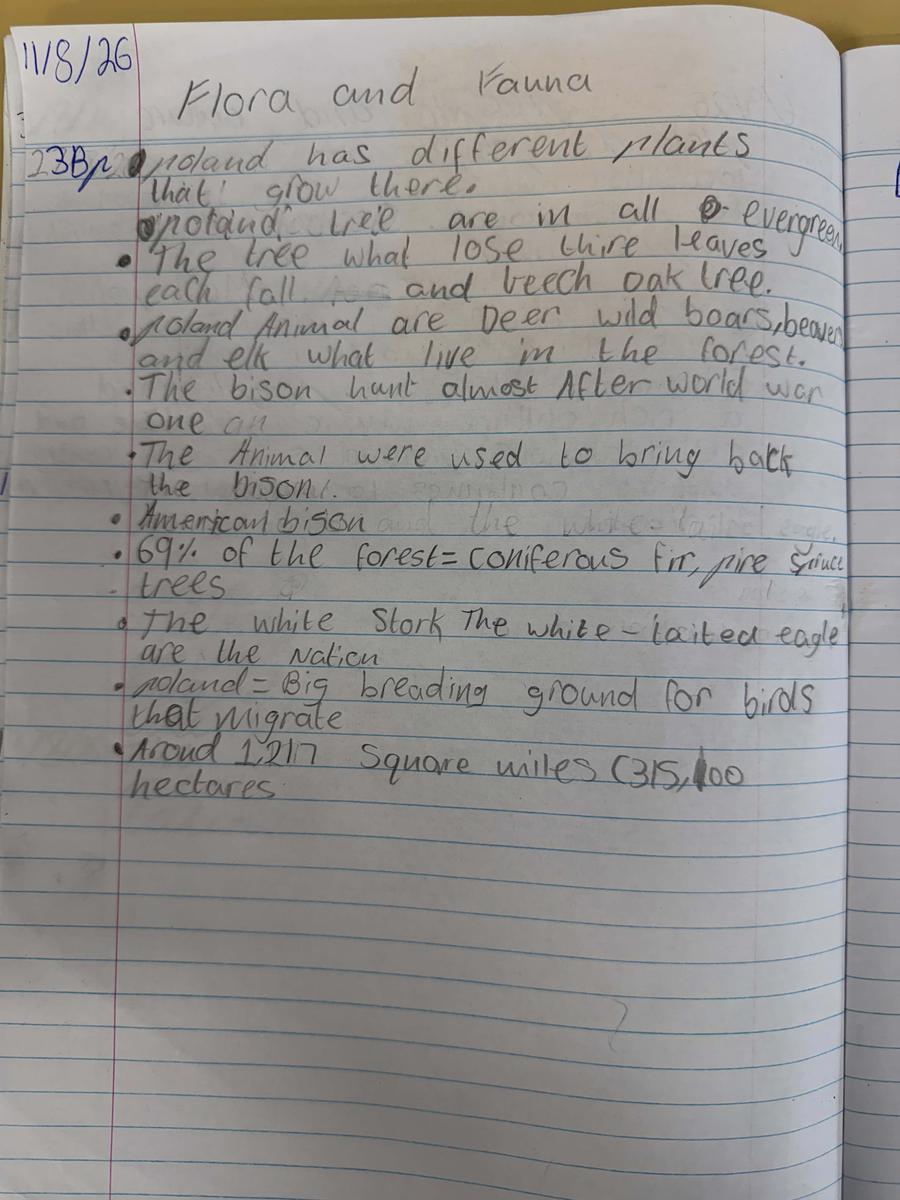 11/8/26
Flora and Fauna
23Bp • poland has different plants
that grow there.
• poland tree are in all - evergreen
• The tree what lose thire leaves
each fall and beech oak tree.
• poland Animal are Deer wild boars, beaver
and elk what live in the forest.
• The bison hunt almost After world war
one an
• The Animal were used to bring back
the bison.
• American bison and the white-tailed eagle.
• 69% of the forest = coniferous fir, pine
trees
• The white Stork The white-tailed eagle
are the Nation
• poland = Big breading ground for birds
that Migrate
• Aroud 1,217 Square miles (315,100
hectares